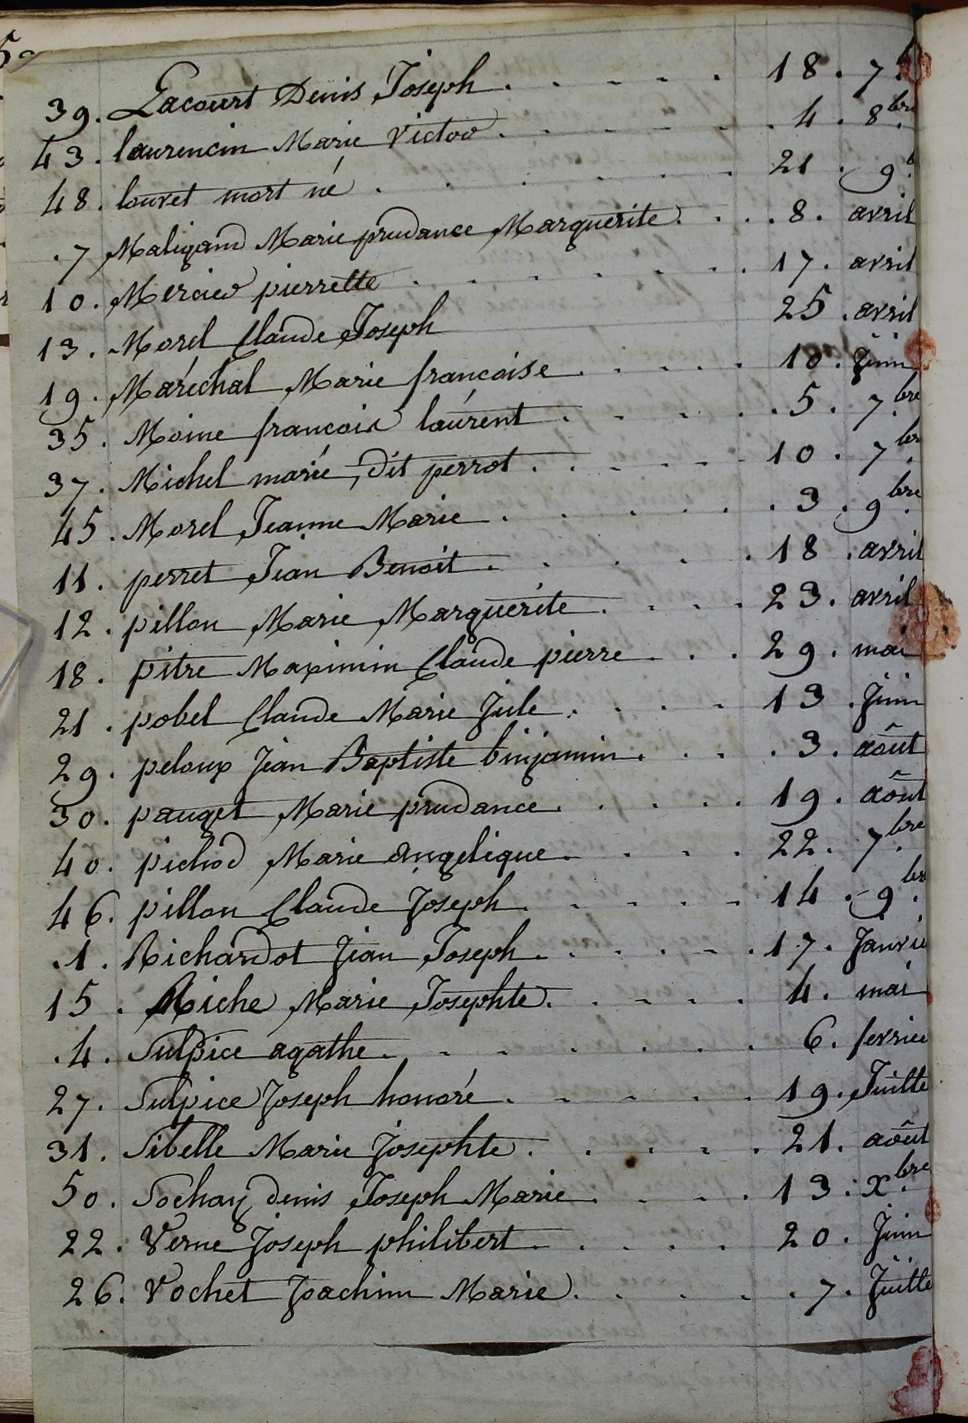 39. Lacourt Denis Joseph . . . . . 18 . 7.b
43. laurencin Marie Victor . . . . . . 4 . 8.bre
48. louvet mort né . . . . . . . 21 . 9.b
.7 Maligand Marie prudance Marguerite . . . 8 . avril
10. Mercier pierrette . . . . . . . 17 . avril
13. Morel Claude Joseph 25 . avril
19. Maréchal Marie francoise . . . . . 10 . Juin
35. Moine francois laurent . . . . . . 5 . 7.bre
37. Michel marie, dit perrot . . . . . 10 . 7.br
45. Morel Jeanne Marie . . . . . . . 3 . 9.bre
11. perret Jean Benoit . . . . . . 18 . avril
12. pillon Marie Marguerite . . . . 23 . avril
18. pitre Maximin Claude pierre . . . 29 . mai
21. pobel Claude Marie Jule . . . . 13 . Juin
29. peloux Jean Baptiste binjamin . . . . 3 . août
30. pauget Marie prudance . . . . . 19 . août
40. pichod Marie Angelique . . . . 22 . 7.bre
46. pillon Claude Joseph . . . . . 14 . 9.br
.1. Richardot Jean Joseph . . . . . 17 . Janvie
15. Riche Marie Josephte . . . . . 4 . mai
.4. Sulpice agathe . . . . . . . . 6 . fevrie
27. Sulpice Joseph honoré . . . . . 19 . Juille
31. Sibelle Marie Josephte . . . . . 21 . août
50. Sochay denis Joseph Marie . . . . 13 . X.bre
22. Verne Joseph philibert . . . . . 20 . Juin
26. Vochet Joachim Marie . . . . . . 7 . Juille